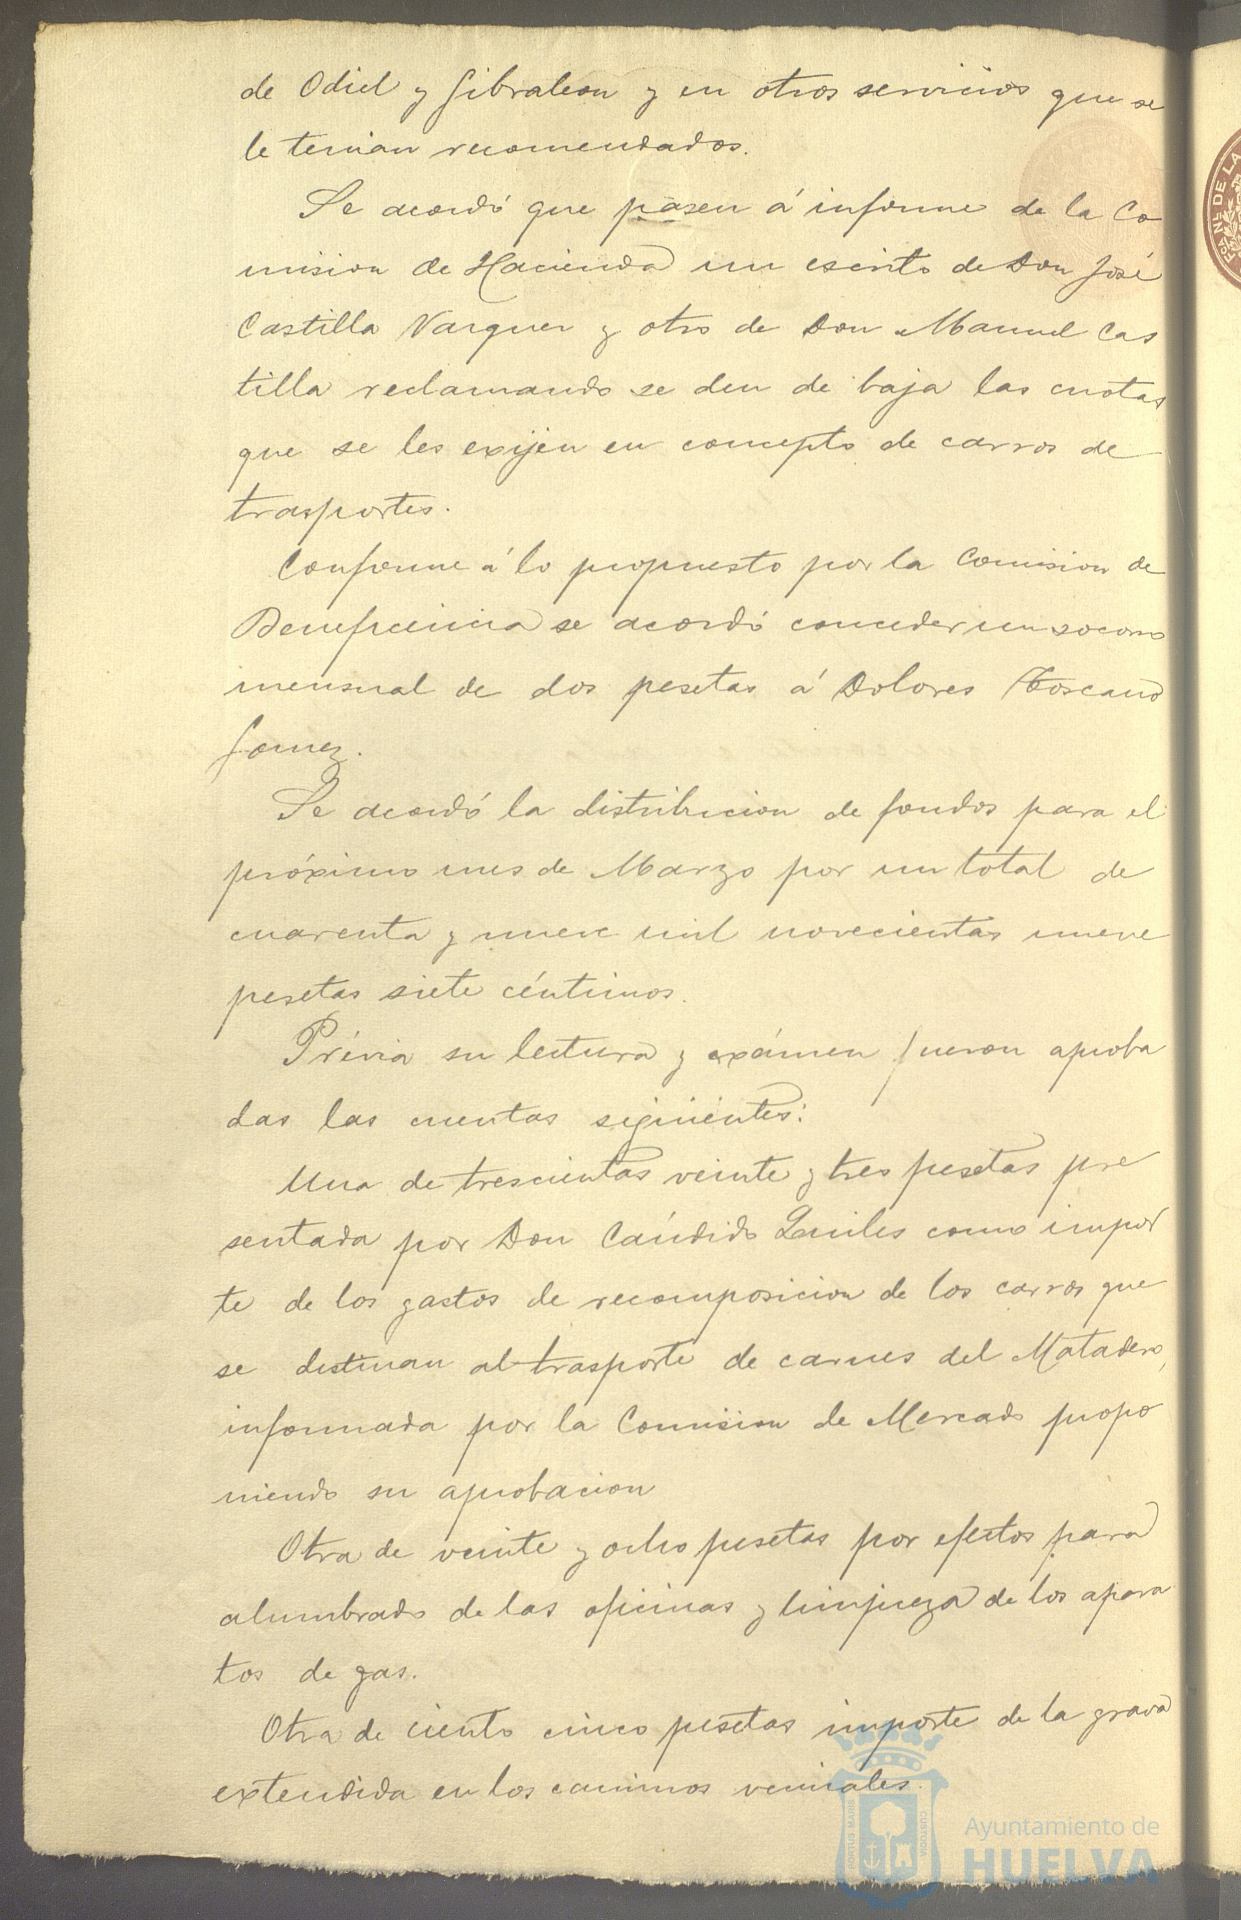 de Odiel y Gibraleon y en otros servicios que se
le tenian recomendados.
Se acordó que pasen á informe de la Co
mision de Hacienda un escrito de Don José
Castilla Varguer y otro de Don Manuel Cas
tilla reclamando se den de baja las cuotas
que se les exijen en concepto de carros de
trasportes.
Conforme á lo propuesto por la Comision de
Beneficiencia se acordó conceder un socorro
mensual de dos pesetas á Dolores Toscano
Gomez.
Se acordó la distribucion de fondos para el
próximo mes de Marzo por un total de
cuarenta y nueve mil novecientas nueve
pesetas siete céntimos.
Prévia su lectura y exámen fueron aproba
das las cuentas siguientes:
Una de trescientas veinte y tres pesetas pre
sentada por Don Cándido Quiles como impor
te de los gastos de recomposicion de los carros que
se destinan al trasporte de carnes del Matadero,
informada por la Comision de Mercado propo
niendo su aprobacion
Otra de veinte y ocho pesetas por efectos para
alumbrado de las oficinas y limpieza de los apara
tos de gas.
Otra de ciento cinco pesetas importe de la grava
extendida en los caminos vecinales.
Ayuntamiento de
HUELVA